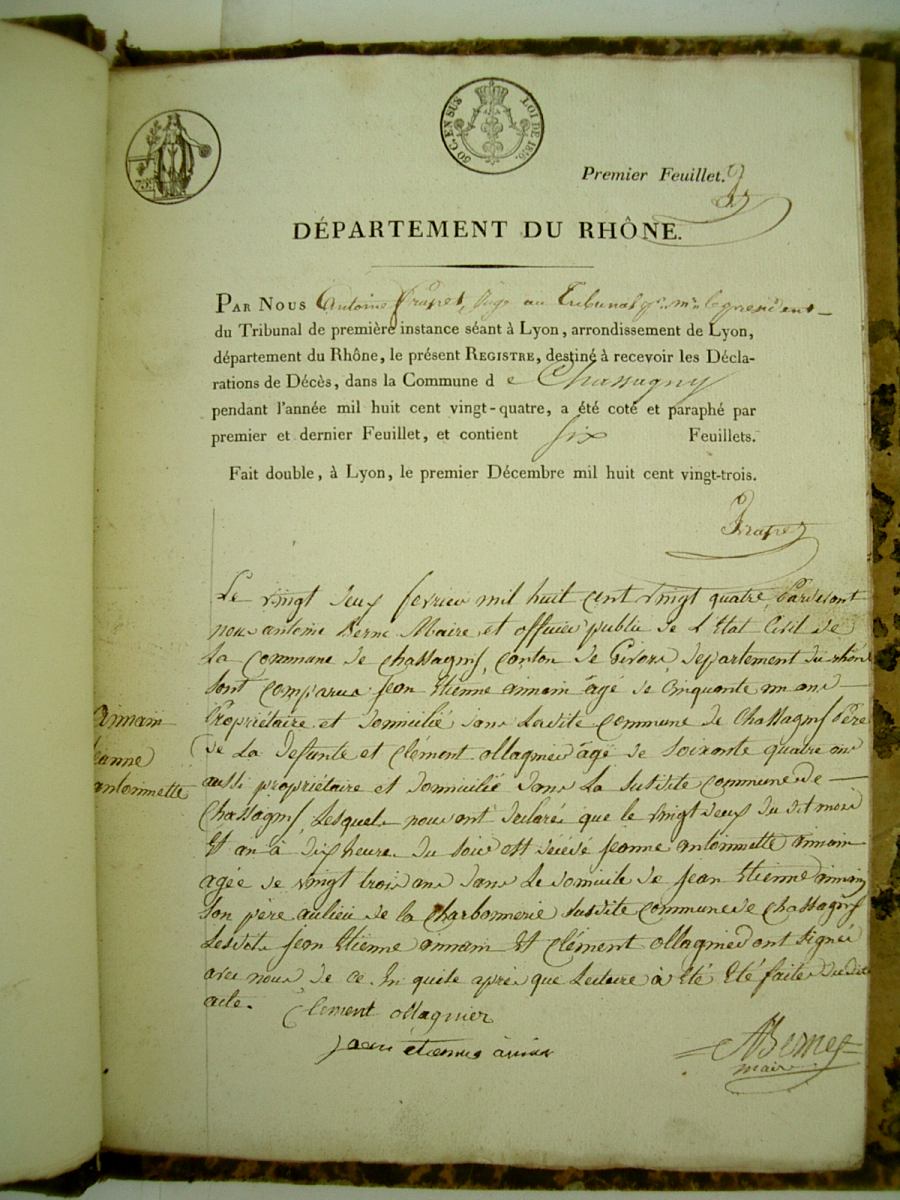 50 C. EN SUS
LOI DE 1816.
Premier Feuillet.
DÉPARTEMENT DU RHÔNE.
PAR NOUS Antoine juge au Tribunal
du Tribunal de première instance séant à Lyon, arrondissement de Lyon,
département du Rhône, le présent REGISTRE, destiné à recevoir les Décla-
rations de Décès, dans la Commune d e Chassagny
pendant l'année mil huit cent vingt-quatre, a été coté et paraphé par
premier et dernier Feuillet, et contient six Feuillets.
Fait double, à Lyon, le premier Décembre mil huit cent vingt-trois.
Le vingt deux fevrier mil huit cent vingt quatre, Pardevant
nous antoine Berne Maire et officier public de L'Etat Civil de
La commune de chassagny, canton de Givors departement du rhône
sont comparus Jean Etienne ainain âgé de cinquante un ans
Propriétaire et domicilié dans Ladite commune de Chassagny Père
de La Defunte et clément ollagnier âgé de soixante quatre ans
aussi propriétaire et domicilié dans La susdite commune de
Chassagny, Lesquels nous ont declaré que le vingt deux du dit mois
Et an à dix heure du soir est décédé jeanne antoinnette ainain
agée de vingt trois ans dans Le domicile de jean Etienne ainain
son père au lieu de la Charbonnerie susdite commune de chassagny
Lesdits jean Etienne ainain Et Clément ollagnier ont signé
avec nous de ce Enquis après que Lecture à Eté Eté faite dudit
acte.
ainain
jeanne
antoinnette
Clement ollagnier
jean étienne ainain
ABerne
maire